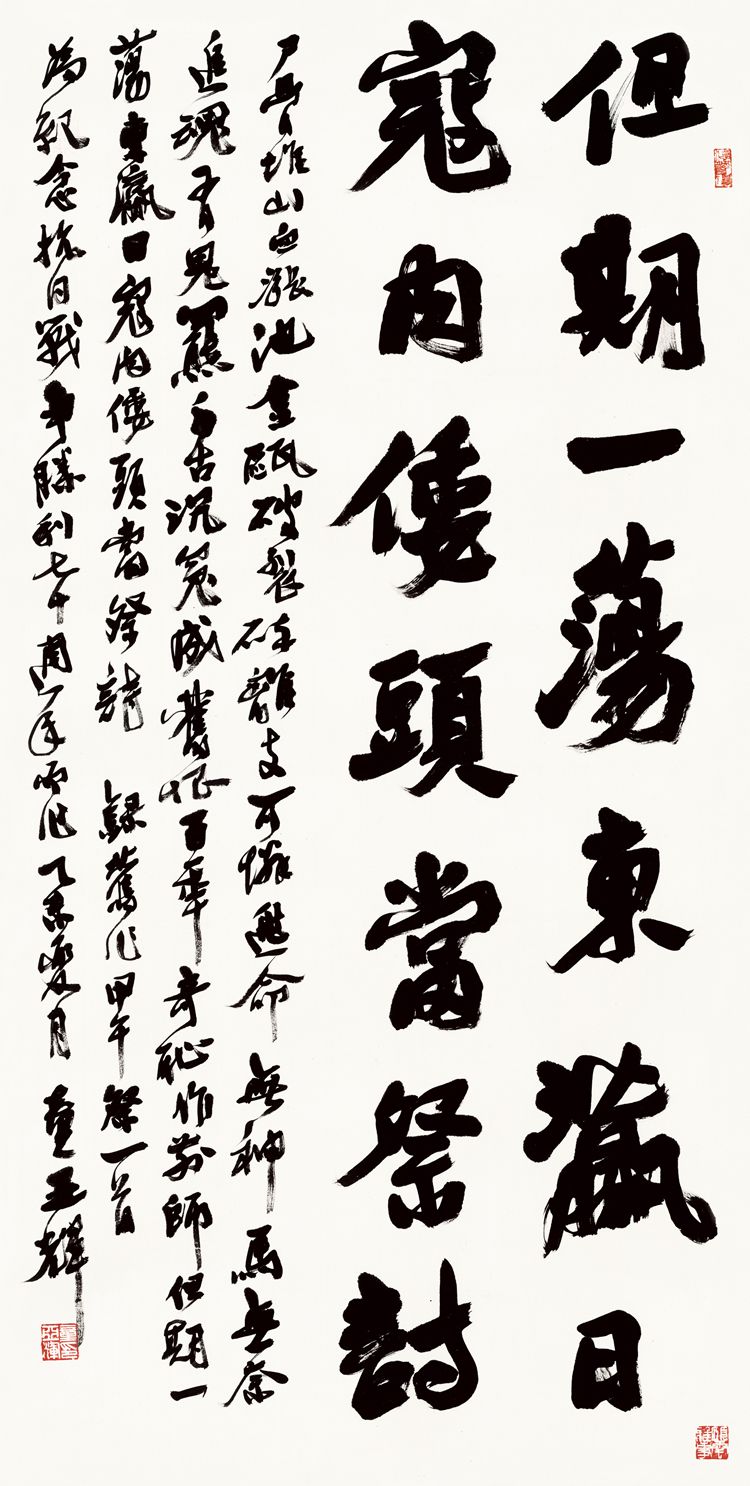 但期一蕩東瀛日
寇肉倭頭當祭詩
尸骨堆山血漲池金甌破裂碎難支可憐運命無神馬無奈
追魂有鬼羆千古沉冤成舊恨百年奇恥作前師但期一
蕩東瀛日寇肉倭頭當祭詩 錄舊作甲午祭一首
為紀念抗日戰爭勝利七十周年而作乙未夏月 童亞輝